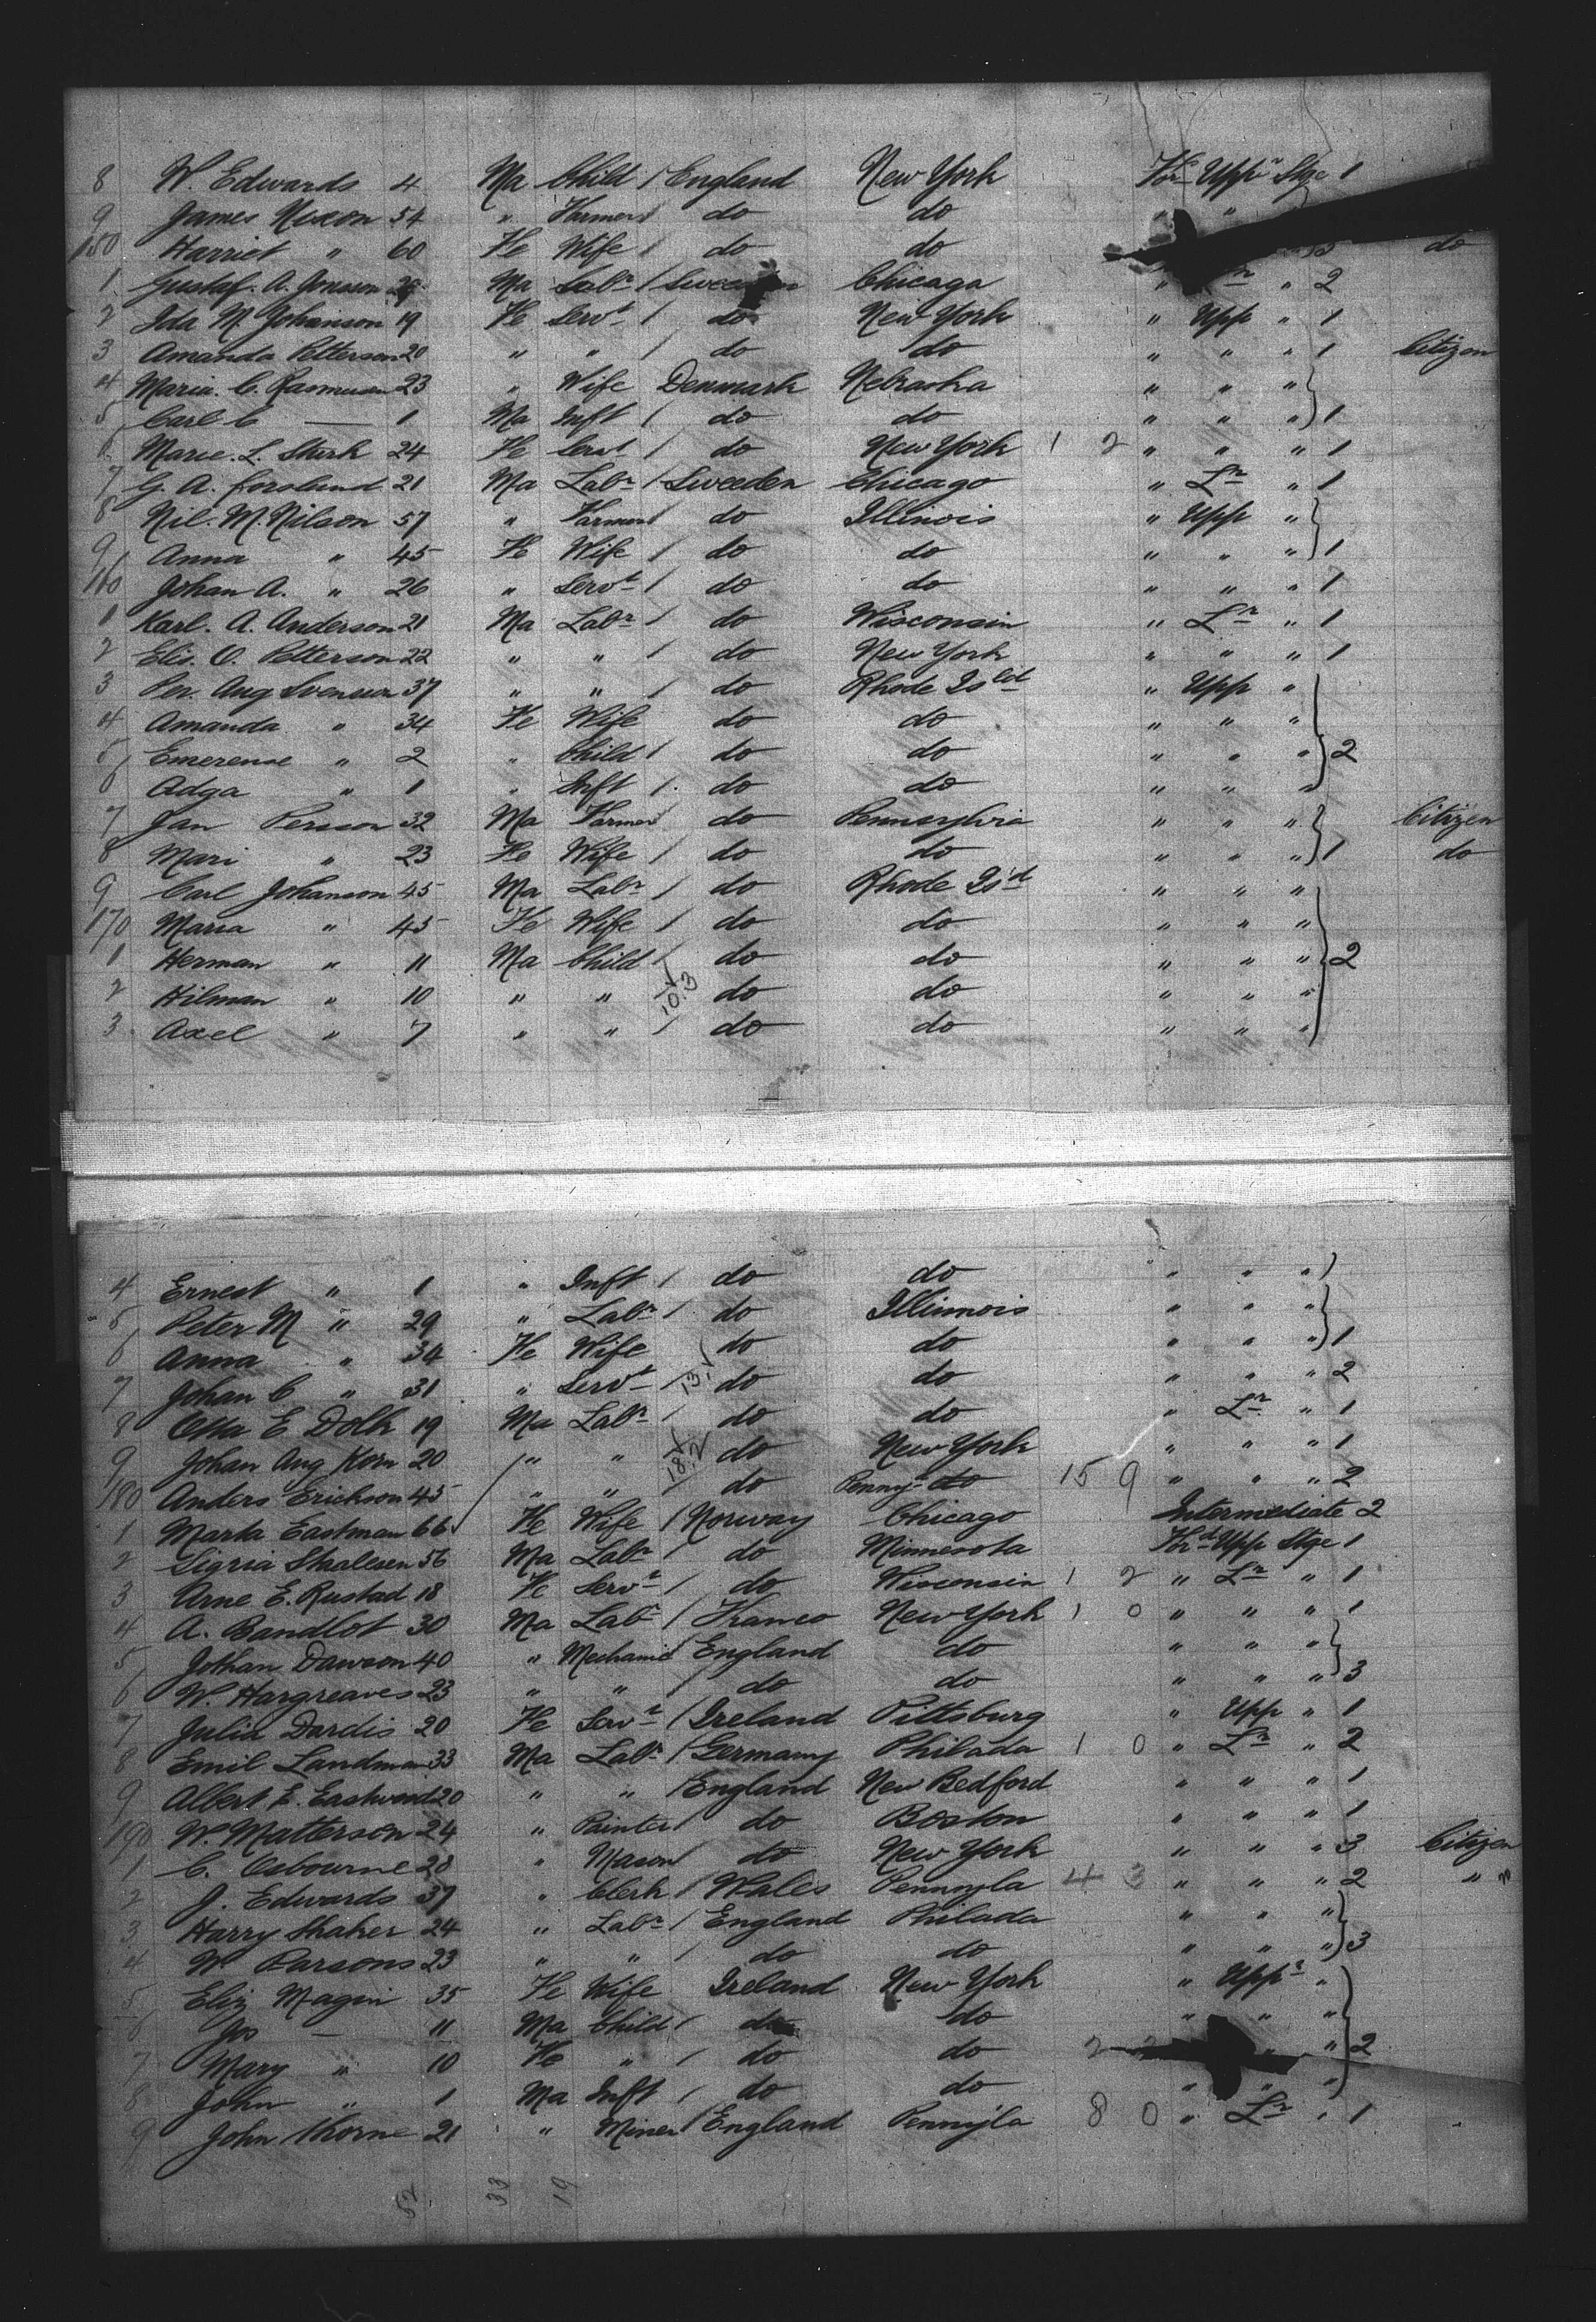 8 W. Edwards 4 Ma Child / England New York For Upp Stge 1
9 James Nixon 54 " Farmer / do do " "
150 Harriet " 60 Fe Wife / do do do
1 Gustaf. A. Jonsson Ma Labr / Chicago " Lr " 2
2 Ida M. Johanson 19 Fe Servt / do New York " Upp " 1
3 Amanda Petterson 20 " " / do do " " " 1 Citizen
4 Maria. C. Rasmussen 23 " Wife Denmark Nebraska " " "
5 Carl C — 1 Ma Inft / do do " " " 1
6 Marie. L. 24 Fe Servt / do New York 1 2 " " " 1
7 G. A. Forslund 21 Ma Labr / Sweeden Chicago " Lr " 1
8 Nil. M. Nilson 57 " Farmer / do Illinois " Upp "
9 Anna " 45 Fe Wife / do do " " " 1
160 Johan A. " 26 " Servt / do do " " " 1
1 Karl. A. Anderson 21 Ma Labr / do Wisconsin " Lr " 1
2 Elis. O. Petterson 22 " " / do New York " " " 1
3 Per. Aug Svensson 37 " " / do Rhode Isld " Upp "
4 Amanda " 34 Fe Wife do do " " "
5 Emerense " 2 " Child / do do " " " 2
6 Adga " 1 " Inft / do do " " "
7 Jan Persson 32 Ma Farmer do Pennsylvia " " " Citizen
8 Mari " 23 Fe Wife / do do " " " 1 do
9 Carl Johanson 45 Ma Labr / do Rhode Isd " " "
170 Maria " 45 Fe Wife / do do " " "
1 Herman " 11 Ma Child / do do " " " 2
2 Hilman " 10 " " / 10.3 do do " " "
3 Axel " 7 " " / do do " " "
4 Ernest " 1 " Inft / do do " " "
5 Peter M " 29 " Labr / do Illinois " " "
6 Anna " 34 Fe Wife do do " " " 1
7 Johan C " 31 " Servt / 13. do do " " " 2
8 Otto E Dolk 19 Ma Labr / do do " Lr " 1
9 Johan Aug Korn 20 " " 18.2 do New York " " " 1
180 Anders Erickson 45 " " / do Pennya do 15 9 " " " 2
1 Marta Eastman 66 Fe Wife / Norway Chicago Intermediate 2
2 Sigria Staalesen 56 Ma Labr / do Minnesota For Upp Stge 1
3 Arne E. Rustad 18 Fe Servt / do Wisconsin 1 2 " Lr " 1
4 A. Bandlot 30 Ma Labr / France New York 1 0 " " " 1
5 Jothan Dawson 40 " Mechanic England do " " "
6 W. Hargreaves 23 " " / do do " " " 3
7 Julia Dardis 20 Fe Servt / Ireland Pittsburg " Upp " 1
8 Emil Landman 33 Ma Labr / Germany Philada 1 0 " Lr " 2
9 Albert E. Eastwood 20 " " / England New Bedford " " " 1
190 W. Matterson 24 " Painter / do Boston " " " 1
1 C. Osbourne 28 " Mason / do New York " " " 3 Citizen
2 J. Edwards 37 " Clerk / Wales Pennyla 4 3 " " " 2 " "
3 Harry Shaker 24 " Labr / England Philada " " "
4 W Parsons 23 " " / do do " " " 3
5 Eliz Magin 35 Fe Wife Ireland New York " Uppr "
6 Jos — 11 Ma Child / do do " " "
7 Mary " 10 Fe " / do do 2 " " 2
8 John " 1 Ma Inft / do do " " "
9 John Thorne 21 " Miner / England Pennyla 8 0 " Lr " 1
52 33 19